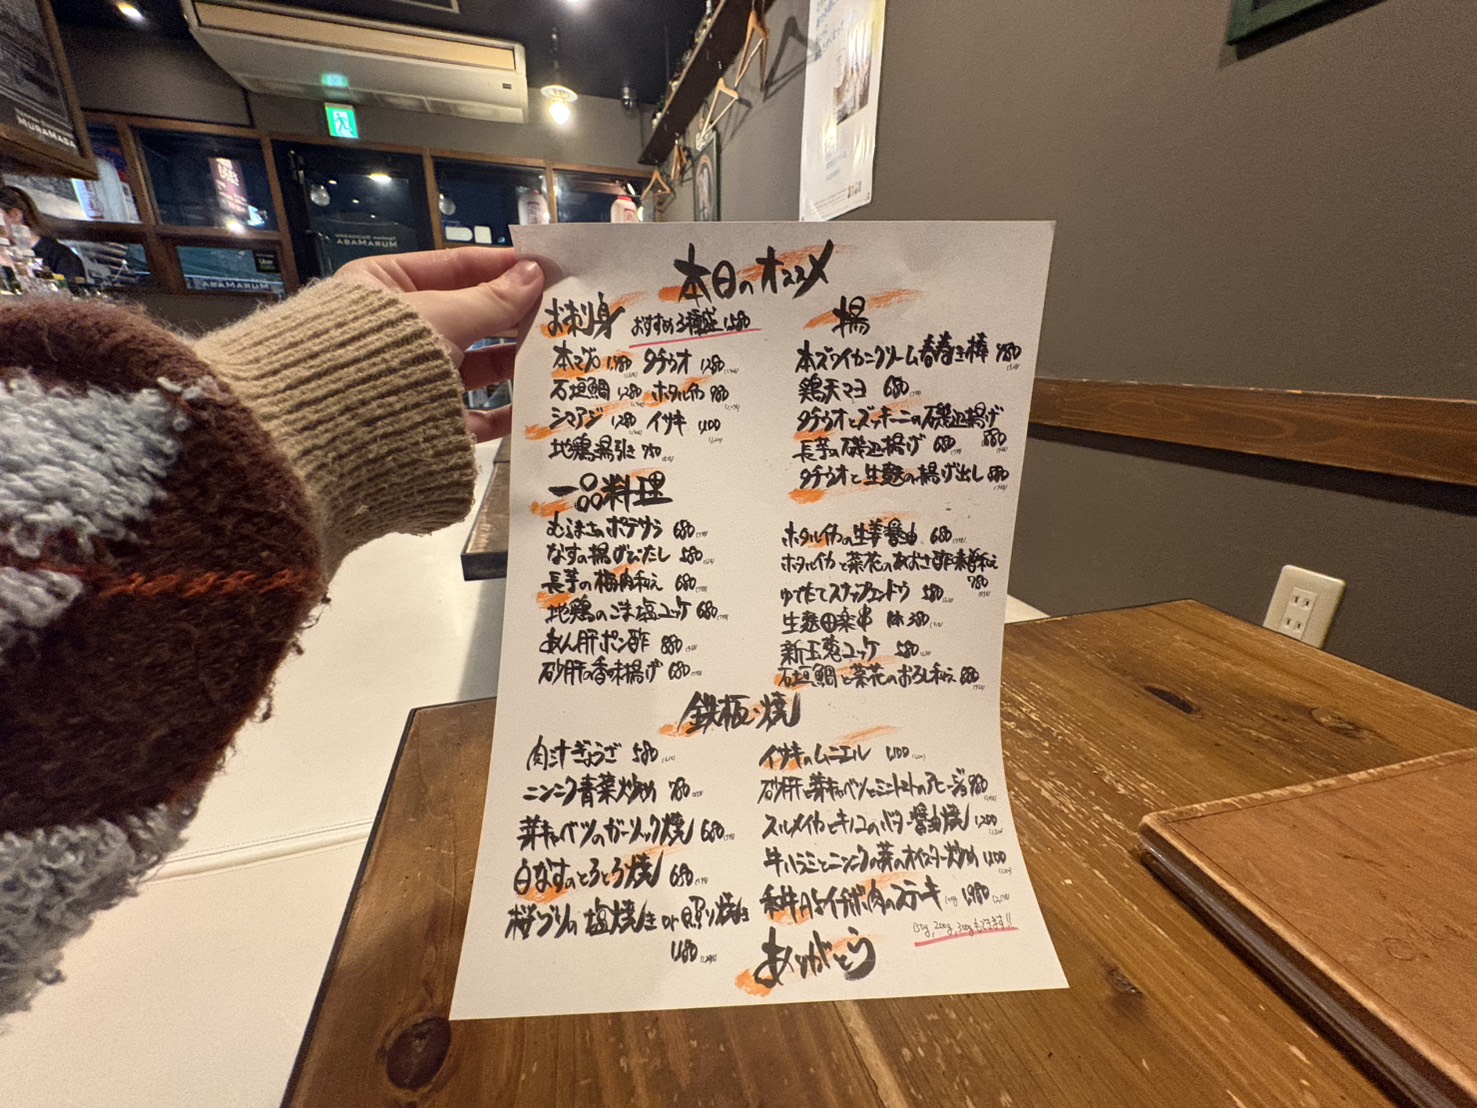 MURAMABA
MURAMABA
MURAMABA
本日のオススメ
お刺身 おすすめ3種盛1,580
本マグロ 1,480 タチウオ 1,280
石垣鯛 1,280 ホタルイカ 980
シマアジ 1,280 イサキ 1,100
地鶏 湯引き 750
一品料理
むらまさのポテサラ 680
なすの揚げびたし 580
長芋の梅肉和え 680
地鶏のごま塩ユッケ 680
あん肝ポン酢 880
砂肝の香味揚げ 680
揚
本ズワイカニクリーム春巻き 1本 480
鶏天マヨ 680
タチウオとズッキーニの磯辺揚げ
880
長芋の磯辺揚げ 680
タチウオと生麩の揚げ出し 880
ホタルイカの生姜醤油 680
ホタルイカと菜花のあおさ酢味噌和え
780
ゆでたてスナップエンドウ 580
生麩田楽串 1本 380
新玉葱ユッケ 580
石垣鯛と菜花のおろし和え 880
鉄板・焼
肉汁ぎょうざ 580
ニンニク青菜炒め 780
芽キャベツのガーリック焼 680
白なすのとろとろ焼 680
桜ブリの塩焼き or 照り焼き
1,180
イサキのムニエル 1,100
砂肝と芽キャベツとミニトマトのアヒージョ 980
スルメイカとキノコのバター醤油焼 1,200
牛ハラミとニンニクの芽のオイスター炒め 1,100
和牛A5イチボ肉のステーキ 1,980
150g,200g,300gもできます!!
ありがとう